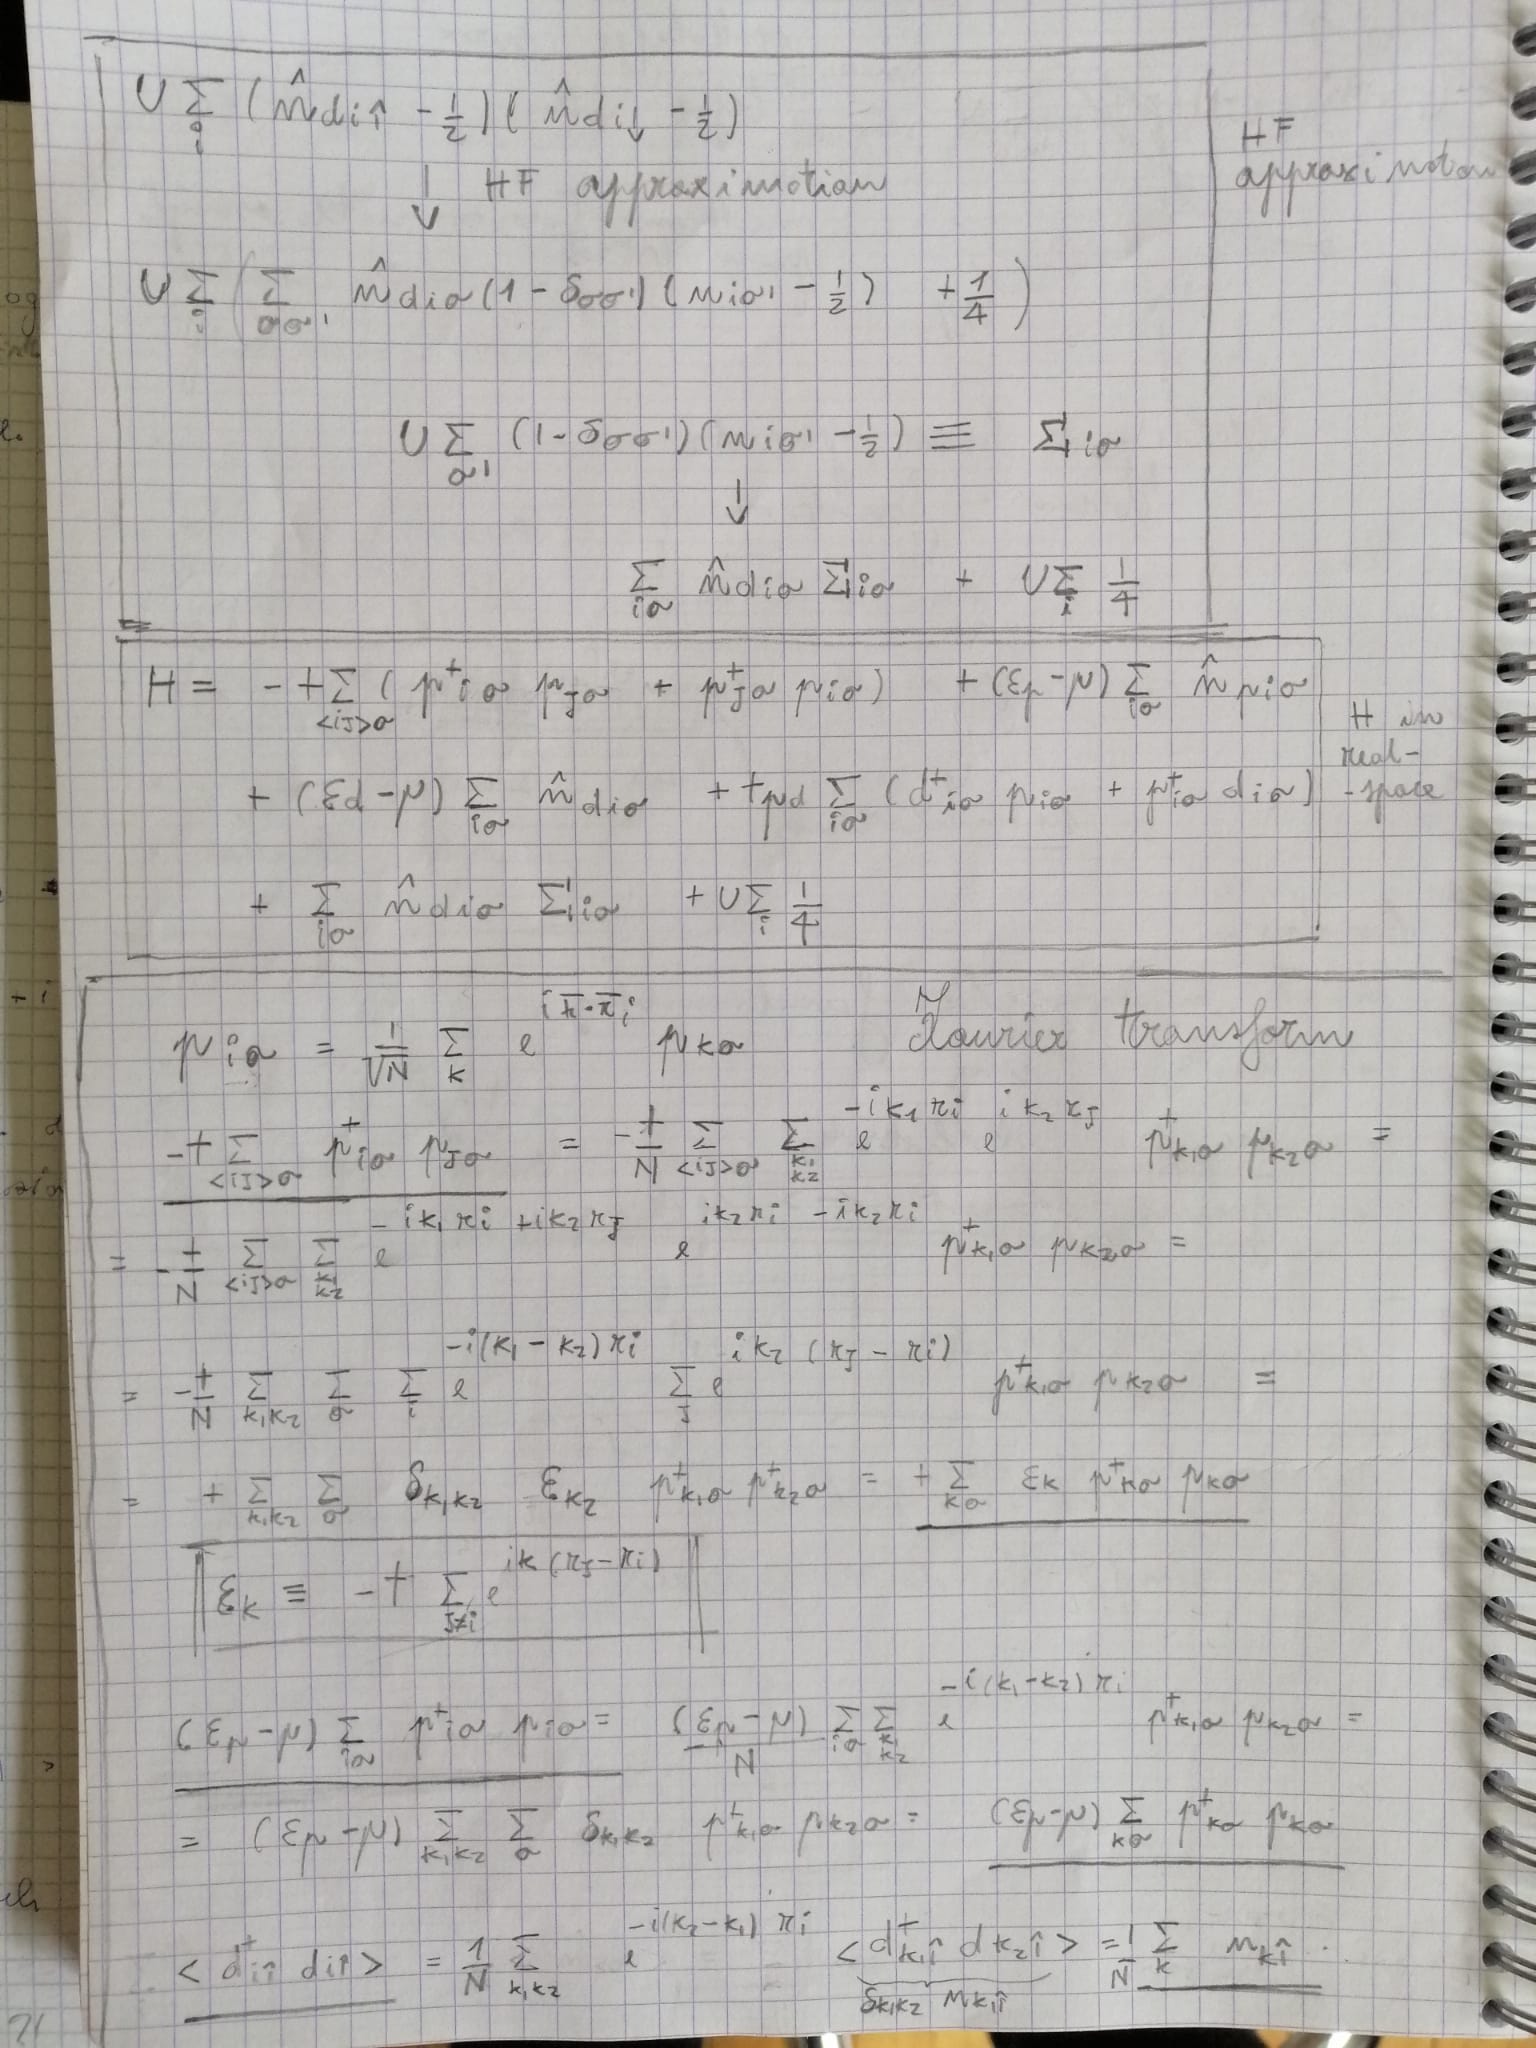 U Σ_i (n̂_di↑ - 1/2)(n̂_di↓ - 1/2)
↓ HF approximation
HF
approximation
U Σ_i (Σ_σσ' n̂_diσ (1 - δ_σσ')(n_iσ' - 1/2) + 1/4)
U Σ_σ' (1 - δ_σσ')(n_iσ' - 1/2) ≡ Σ_iσ
↓
Σ_iσ n̂_diσ Σ_iσ + U Σ_i 1/4
H = - t Σ_<iJ>σ (p⁺_iσ p_Jσ + p⁺_Jσ p_iσ) + (ε_p - μ) Σ_iσ n̂_piσ
+ (ε_d - μ) Σ_iσ n̂_diσ + t_pd Σ_iσ (d⁺_iσ p_iσ + p⁺_iσ d_iσ)
+ Σ_iσ n̂_diσ Σ_iσ + U Σ_i 1/4
H in
real-
-space
p_iσ = 1/√N Σ_k e^{i k̄·r̄_i} p_kσ Fourier transform
-t Σ_<iJ>σ p⁺_iσ p_Jσ = -t/N Σ_<iJ>σ Σ_k1k2 e^{-ik1 r_i} e^{ik2 r_J} p⁺_k1σ p_k2σ =
= -t/N Σ_<iJ>σ Σ_k1k2 e^{-ik1 r_i + ik2 r_J} e^{ik2 r_i - ik2 r_i} p⁺_k1σ p_k2σ =
= -t/N Σ_k1k2 Σ_σ Σ_i e^{-i(k1 - k2) r_i} Σ_J e^{ik2 (r_J - r_i)} p⁺_k1σ p_k2σ =
= + Σ_k1k2 Σ_σ δ_k1k2 ε_k2 p⁺_k1σ p⁺_k2σ = + Σ_kσ ε_k p⁺_kσ p_kσ
ε_k ≡ -t Σ_J≠i e^{ik(r_J - r_i)}
(ε_p - μ) Σ_iσ p⁺_iσ p_iσ = (ε_p - μ)/N Σ_iσ Σ_k1k2 e^{-i(k1 - k2) r_i} p⁺_k1σ p_k2σ =
= (ε_p - μ) Σ_k1k2 Σ_σ δ_k1k2 p⁺_k1σ p_k2σ = (ε_p - μ) Σ_kσ p⁺_kσ p_kσ
<d⁺_i↑ d_i↑> = 1/N Σ_k1k2 e^{-i(k2 - k1) r_i} <d⁺_k1↑ d_k2↑> = 1/N Σ_k n_k↑
δ_k1k2 n_k1↑